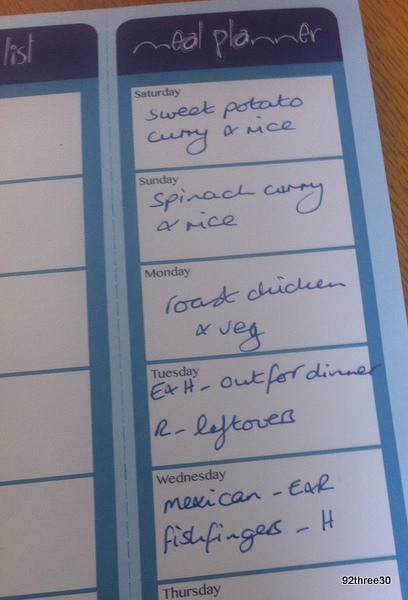 list
meal planner
Saturday
sweet potato
curry & rice
Sunday
spinach curry
& rice
Monday
roast chicken
& veg
Tuesday
E&H - out for dinner
R - leftovers
Wednesday
mexican - E&R
fishfingers - H
Thursday
92three30